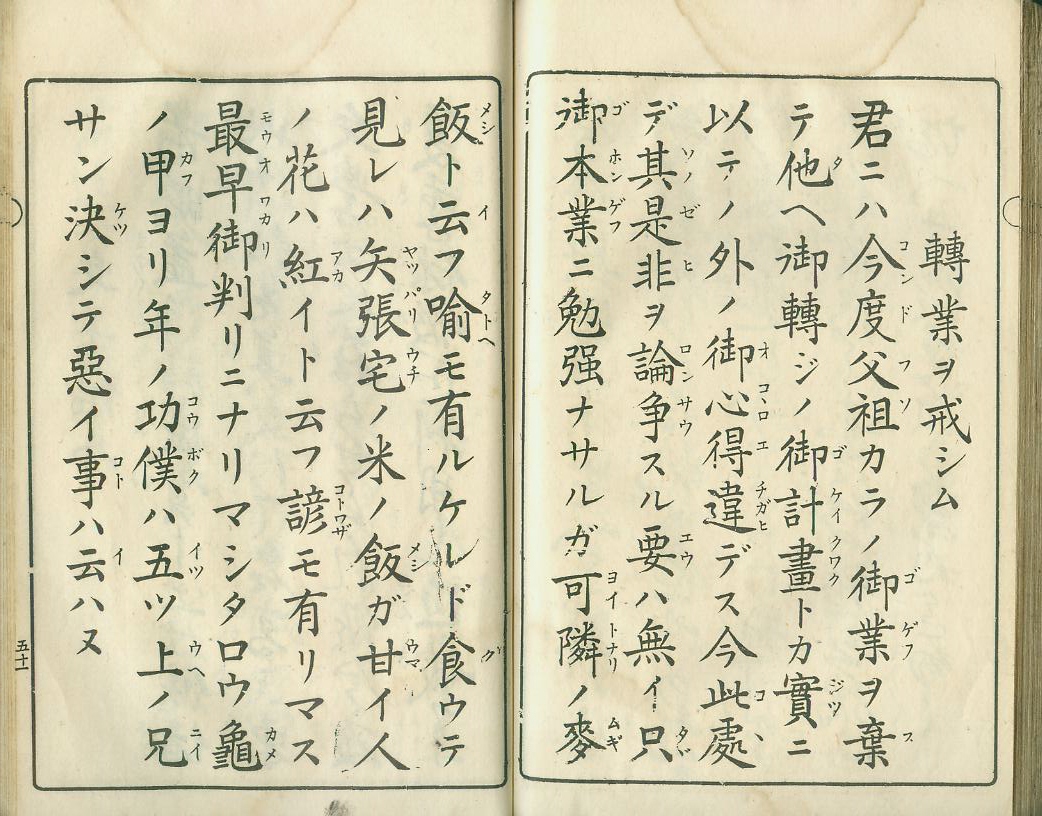 轉業ヲ戒シム
君ニハ今度父祖カラノ御業ヲ棄
テ他ヘ御轉ジノ御計畫トカ實ニ
以テノ外ノ御心得違デス今此處
デ其是非ヲ論争スル要ハ無イ只
御本業ニ勉强ナサルガ可隣ノ麥
飯ト云フ喩モ有ルケルド食ウテ
見レハ矢張宅ノ米ノ飯ガ甘イ人
ノ花ハ紅イト云フ諺モ有リマス
最早御判リニナリマシタロウ龜
ノ甲ヨリ年ノ功僕ハ五ツ上ノ兄
サン決シテ惡イ事ハ云ハヌ
五十一